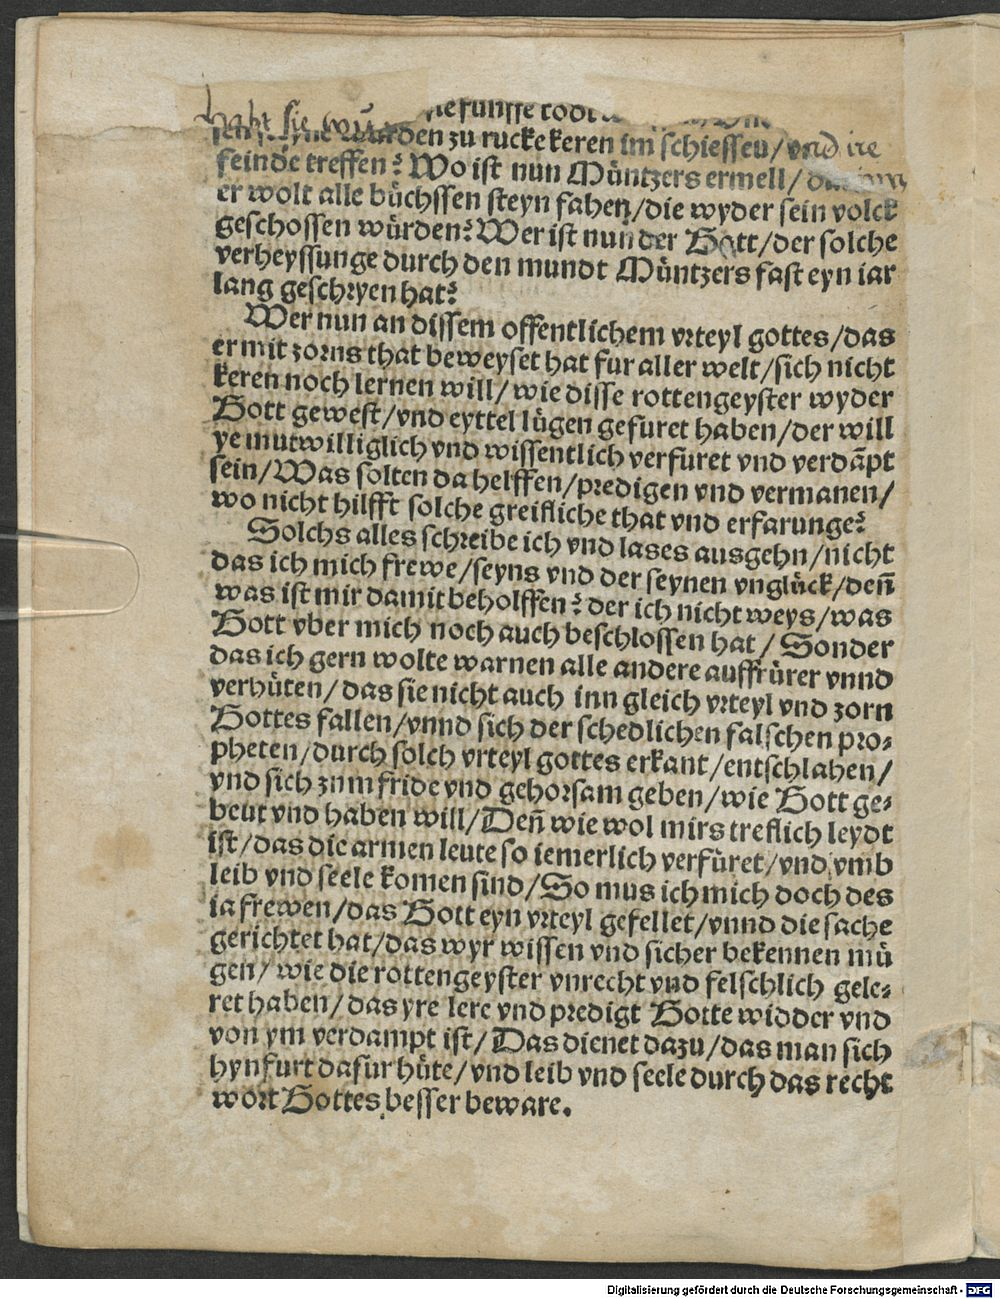 funffe todt
habt sie würden zu rucke keren im schiessen/ vnd ire
feinde treffen? Wo ist nun Müntzers ermell/
er wolt alle büchssen steyn fahen/die wyder sein volck
geschossen würden? Wer ist nun der Gott/der solche
verheyssunge durch den mundt Müntzers fast eyn iar
lang geschryen hat?
Wer nun an dissem offentlichem vrteyl gottes/das
er mit zorns that beweyset hat fur aller welt/sich nicht
keren noch lernen will/ wie disse rottengeyster wyder
Gott gewest/vnd eyttel lügen gefuret haben/der will
ye mutwilliglich vnd wissentlich verfuret vnd verdāpt
sein/Was solten da helffen/predigen vnd vermanen/
wo nicht hilfft solche greifliche that vnd erfarunge?
Solchs alles schreibe ich vnd lases ausgehn/nicht
das ich mich frewe/seyns vnd der seynen vnglück/den̄
was ist mir damit beholffen? der ich nicht weys/was
Gott vber mich noch auch beschlossen hat/ Sonder
das ich gern wolte warnen alle andere auffrürer vnnd
verhüten/ das sie nicht auch inn gleich vrteyl vnd zorn
Gottes fallen/vnnd sich der schedlichen falschen pro⸗
pheten/durch solch vrteyl gottes erkant/entschlahen/
vnd sich zum fride vnd gehorsam geben/wie Gott ge⸗
beut vnd haben will/Den̄ wie wol mirs treflich leydt
ist/das die armen leute so iemerlich verfüret/vnd vmb
leib vnd seele komen sind/So mus ich mich doch des
ia frewen/das Gott eyn vrteyl gefellet/vnnd die sache
gerichtet hat/das wyr wissen vnd sicher bekennen mü
gen/ wie die rottengeyster vnrecht vnd felschlich gele⸗
ret haben/das yre lere vnd predigt Gotte widder vnd
von ym verdampt ist/ Das dienet dazu/das man sich
hynfurt dafur hüte/vnd leib vnd seele durch das recht
wort Gottes besser beware.
Digitalisierung gefördert durch die Deutsche Forschungsgemeinschaft - DFG